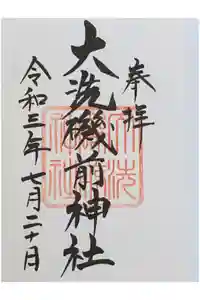 奉拝
大洗磯前神社
令和三年七月二十日